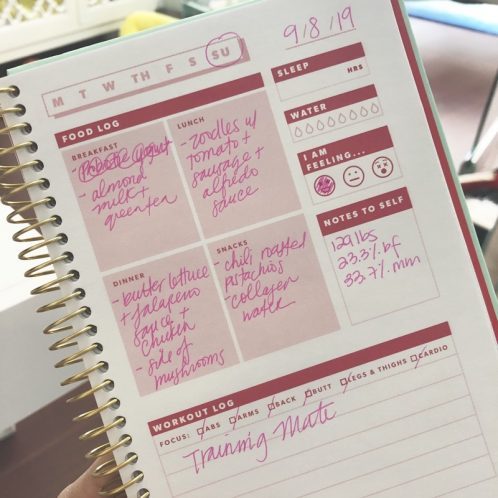 9/8/19
M T W TH F S SU
SLEEP
HRS
FOOD LOG
WATER
BREAKFAST
- almond
milk +
green tea
LUNCH
- zoodles w/
tomato +
sausage +
alfredo
sauce
I AM
FEELING...
DINNER
- butter lettuce
+ jalapeno
sauce +
chicken
- side of
mushrooms
SNACKS
- chili roasted
pistachios
- collagen
water
NOTES TO SELF
129 lbs
23.3% bf
33.7% mm
WORKOUT LOG
FOCUS: ABS ARMS BACK BUTT LEGS & THIGHS CARDIO
Training Mate